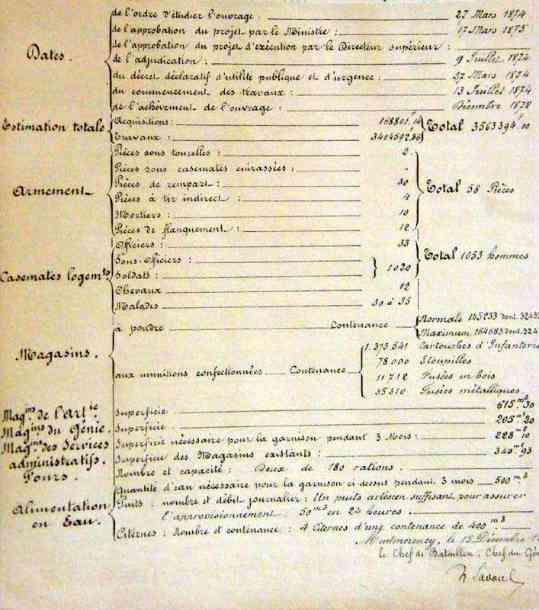 Dates.
de l'ordre d'étudier l'ouvrage : 27 Mars 1874
de l'approbation du projet par le Ministre : 17 Mars 1875
de l'approbation du projet d'exécution par le Directeur supérieur :
de l'adjudication : 9 Juillet 1874
du décret déclaratif d'utilité publique et d'urgence : 27 Mars 1874
du commencement des travaux : 13 Juillet 1874
de l'achèvement de l'ouvrage : Décembre 1878
Estimation totale
Acquisitions :
Travaux :
Total
Armement
Pièces sous tourelles : 2
Pièces sous casemates cuirassées : -
Pièces de rempart : 30
Pièces à tir indirect : 4
Mortiers : 10
Pièces de flanquement : 12
Total 58 Pièces
Casemates logemts
Officiers : 33
Sous-Officiers :
Soldats : } 1020
Chevaux 12
Malades 30 à 35
Total 1053 hommes
Magasins.
à poudre Contenance
Normale
Maximum
aux munitions confectionnées Contenance
1.373.541 Cartouches d'Infanterie
78.000 Etoupilles
11.712 Fusées en bois
35.310 Fusées métalliques.
Magins de l'Artie Superficie 615 m2 30
Magins du Génie. Superficie 205 m2 20
Magins des Services administratifs.
Superficie nécessaire pour la garnison pendant 3 Mois : 228 m2 10
Superficie des Magasins existants : 340 m2 95
Fours. Nombre et capacité : Deux de 180 rations.
Alimentation en Eau.
Quantité d'eau nécessaire pour la garnison ci dessus pendant 3 mois 500 m3
Puits : nombre et débit journalier : Un puits artésien suffisant pour assurer
l'approvisionnement 50 m3 en 24 heures.
Citernes : Nombre et contenance : 4 Citernes d'une contenance de 400 m3
Montmorency, le 15 Décembre
le Chef de Bataillon, Chef du Gén